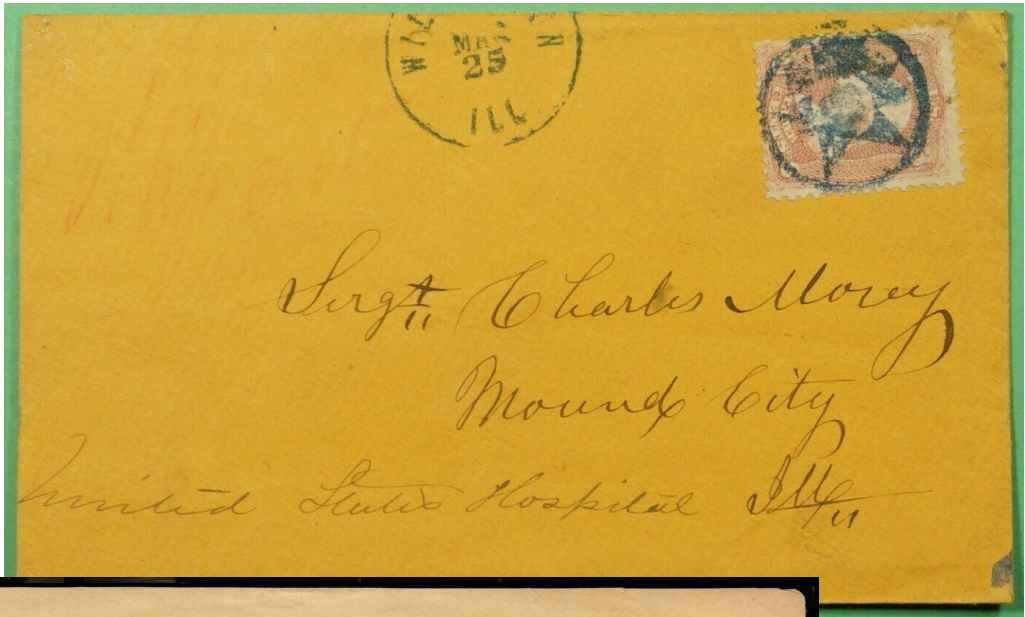 MAR
25
ILL
Sergt Charles Morey
Mound City
United States Hospital Ill